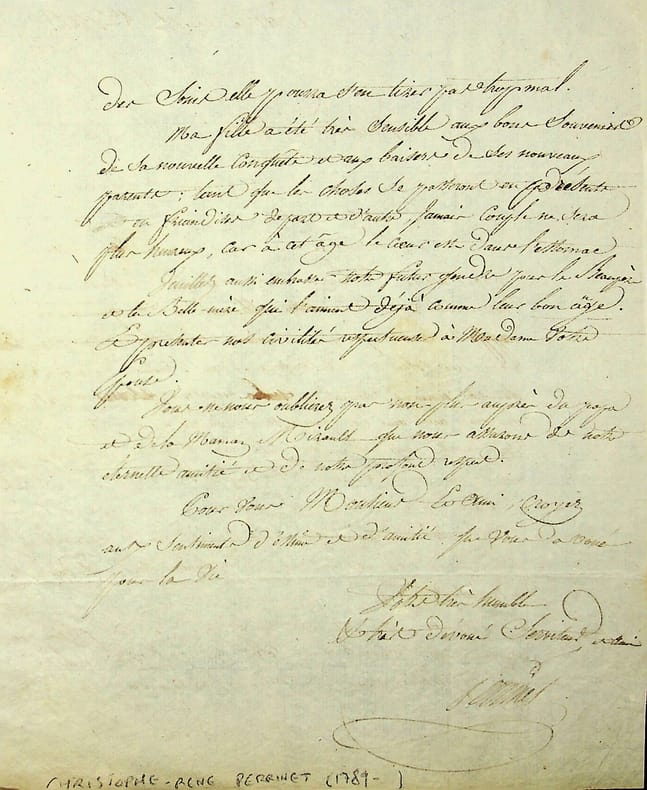 des soins elle pourra s'en tirer pas trop mal.
Ma fille a été très sensible aux bons souvenirs
de sa nouvelle conquête et aux baisers de ses nouveaux
parents; tant que les choses se passeront en présents
ou friandises de part et d'autre, jamais couple ne sera
plus heureux, car à cet âge le cœur est dans l'estomac
Veuillez aussi embrasser notre futur gendre pour le Beaupère
et la Belle mère qui l'aiment déjà comme leur bon
Et présenter nos civilités respectueuses à Madame Votre
Épouse.
Vous ne nous oublierez pas non plus auprès du papa
et de la Maman Mirault que nous assurons de notre
éternelle amitié et de notre profond respect.
Pour vous Monsieur Et Ami, croyez
aux sentiments d'estime et d'amitié que vous a voué
pour la vie
Votre très humble
Et très dévoué Serviteur, et ami
CHRISTOPHE-RENE PERRINET (1789- )